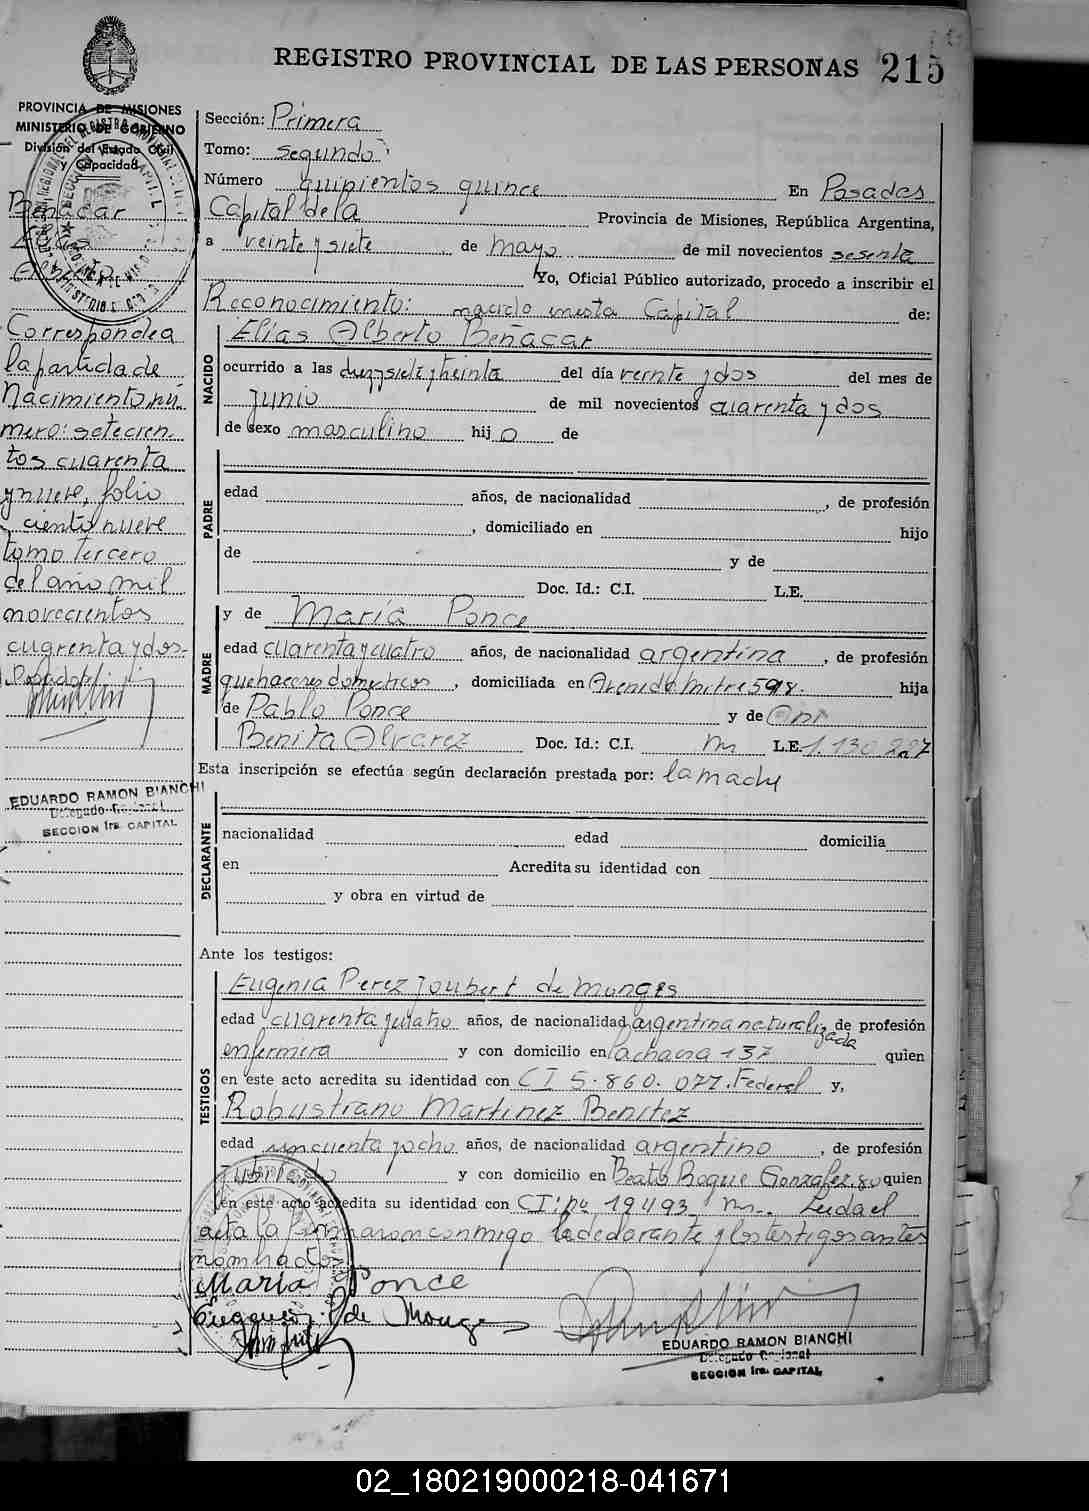 REGISTRO PROVINCIAL DE LAS PERSONAS 215
PROVINCIA DE MISIONES
MINISTERIO DE GOBIERNO
División del Estado Civil
y Capacidad
Benacar
Correspondea
la partida de
Nacimiento nú
mero: setecien
tos cuarenta
y nueve, folio
ciento nueve
tomo tercero
del año mil
novecientos
cuarenta y dos-
EDUARDO RAMON BIANCHI
Delegado Regional
SECCION 1ra. CAPITAL
Sección: Primera
Tomo: segundo
Número quinientos quince En Posadas
Capital de la Provincia de Misiones, República Argentina,
a veinte y siete de mayo de mil novecientos sesenta
Yo, Oficial Público autorizado, procedo a inscribir el
Reconocimiento: nacido en esta Capital de:
NACIDO
Elias Alberto Benacar
ocurrido a las diez y siete y treinta del día veinte y dos del mes de
junio de mil novecientos cuarenta y dos
de sexo masculino hij o de
PADRE
edad años, de nacionalidad , de profesión
, domiciliado en hijo
de y de
Doc. Id.: C.I. L.E.
MADRE
y de María Ponce
edad cuarenta y cuatro años, de nacionalidad argentina , de profesión
quehaceres domesticos , domiciliada en Avenida Mitre 598. hija
de Pablo Ponce y de
Benita Alvarez Doc. Id.: C.I. L.E. 1.130.227
Esta inscripción se efectúa según declaración prestada por: la madre
DECLARANTE
nacionalidad edad domicilia
en Acredita su identidad con
y obra en virtud de
Ante los testigos:
TESTIGOS
Eugenia Perez Joubert de Monges
edad cuarenta y cuatro años, de nacionalidad argentina naturalizada de profesión
enfermera y con domicilio en 137 quien
en este acto acredita su identidad con CI 5.860.077. Federal y,
Robustiano Martinez Benitez
edad cincuenta y ocho años, de nacionalidad argentino , de profesión
jubilado y con domicilio en Beato Roque Gonzalez 80 quien
en este acto acredita su identidad con CI: no 19493 Leida el
acta la firmaron conmigo la declarante y los testigos antes
nombrados
Maria Ponce
de Monges
EDUARDO RAMON BIANCHI
Delegado Regional
SECCION 1ra. CAPITAL
02_180219000218-041671